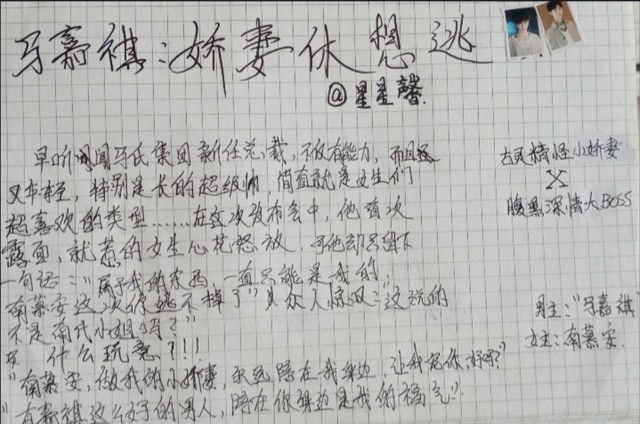 马嘉祺:娇妻休想逃
@星星馨
早听闻马氏集团新任总裁,不仅有能力,而且还
又年轻,特别是长的超级帅,简直就是女生们
超喜欢的类型……在这次发布会中,他首次
露面,就惹的女生心花怒放,可他却只留下
一句话:“属于我的东西一直只能是我的,
南慕安这次你逃不掉了”众人惊叹:这说的
不是南氏小姐吗?”
什么玩意?!!!
“南慕安,做我的小娇妻,永远陪在我身边,让我宠你,好吗?”
“有嘉祺这么好的男人,陪在你身边是我的福气”.
古灵精怪小娇妻
X
腹黑深情大BOSS
男主:“马嘉祺”
女主:南慕安.